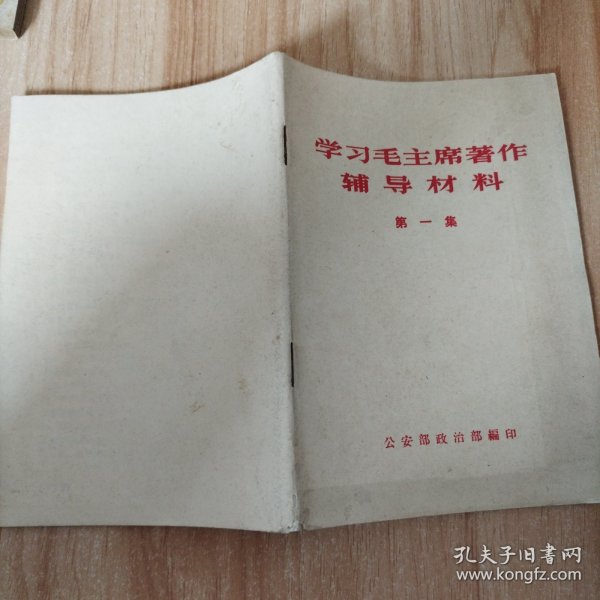 学习毛主席著作
辅导材料
第一集
公安部政治部編印
孔夫子旧书网
www.kongfz.com